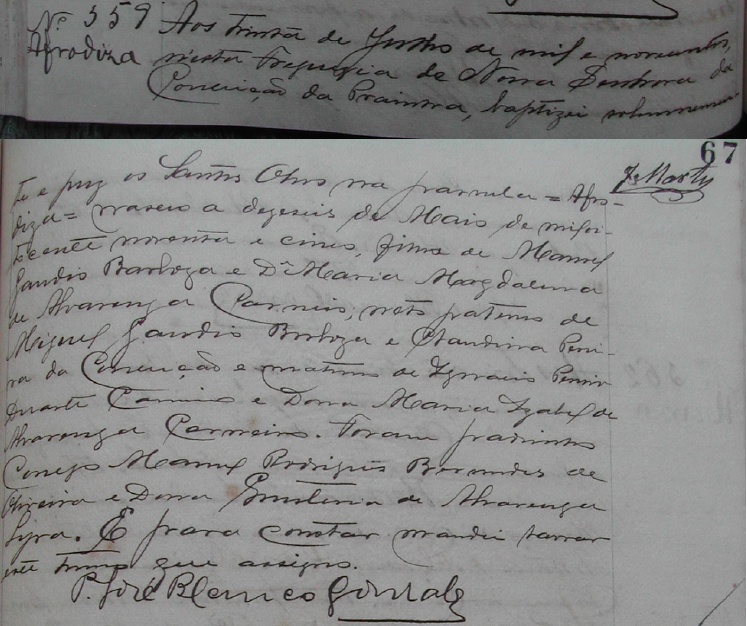 Nº 559 Aos trinta de Junho de mil e novecentos,
Afrodiza nesta Freguezia de Nossa Senhora da
Conceição da Prainha, baptizei solemnemen-
67
te e puz os Santos Oleos na parvula = Afro-
diza = nasceu a dezeseis de Maio de mil oi-
tocentos noventa e cinco, filha de Manoel
Gaudio Barboza e Dª Maria Magdalena
de Alvarenga Carneiro, neta paterna de
Miguel Gaudio Barboza e Claudina Perei-
ra da Conceição e materna de Ignacio Pereira
Duarte Carneiro e Dona Maria Izabel de
Alvarenga Carneiro. Foram padrinhos
Conego Manoel Rodrigues Bermudes de
Oliveira e Dona de Alvarenga
Lyra. E para constar mandei lavrar
este termo que assigno.
P. José Blanco Gonzalez